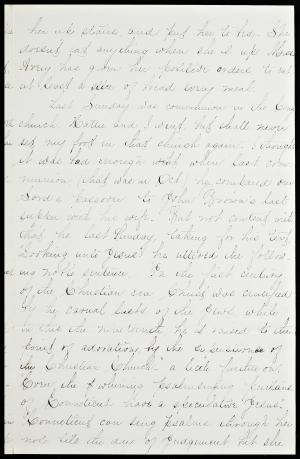 her up stairs and put her to bed. She
doesn't eat anything when she is up Miss
Avery has given her positive orders to eat
at least a slice of bread every meal.
Last Sunday was communion in the Cong
church. Hattie and I went, but shall never
set my foot in that church again. I thought
it was bad enough when last com-
munion (that was in Oct) he compared our
Lord's Passover to John Brown's last
supper with his wife. But not content with
that, he last Sunday, taking for his text
"Looking unto Jesus" he uttered the follow-
ing noble sentence. "In the first century
of the Christian era, Christ was crucified
by the carnal lusts of the Jews while
in this the nineteenth he is raised to the
of adoration by the subservience of
the Christian Church" a little further on
the whining Psalm singing
of Connecticut have a speculative "Jesus"
"Connecticut can sing Psalms through her
nose till the day of Judgement but she